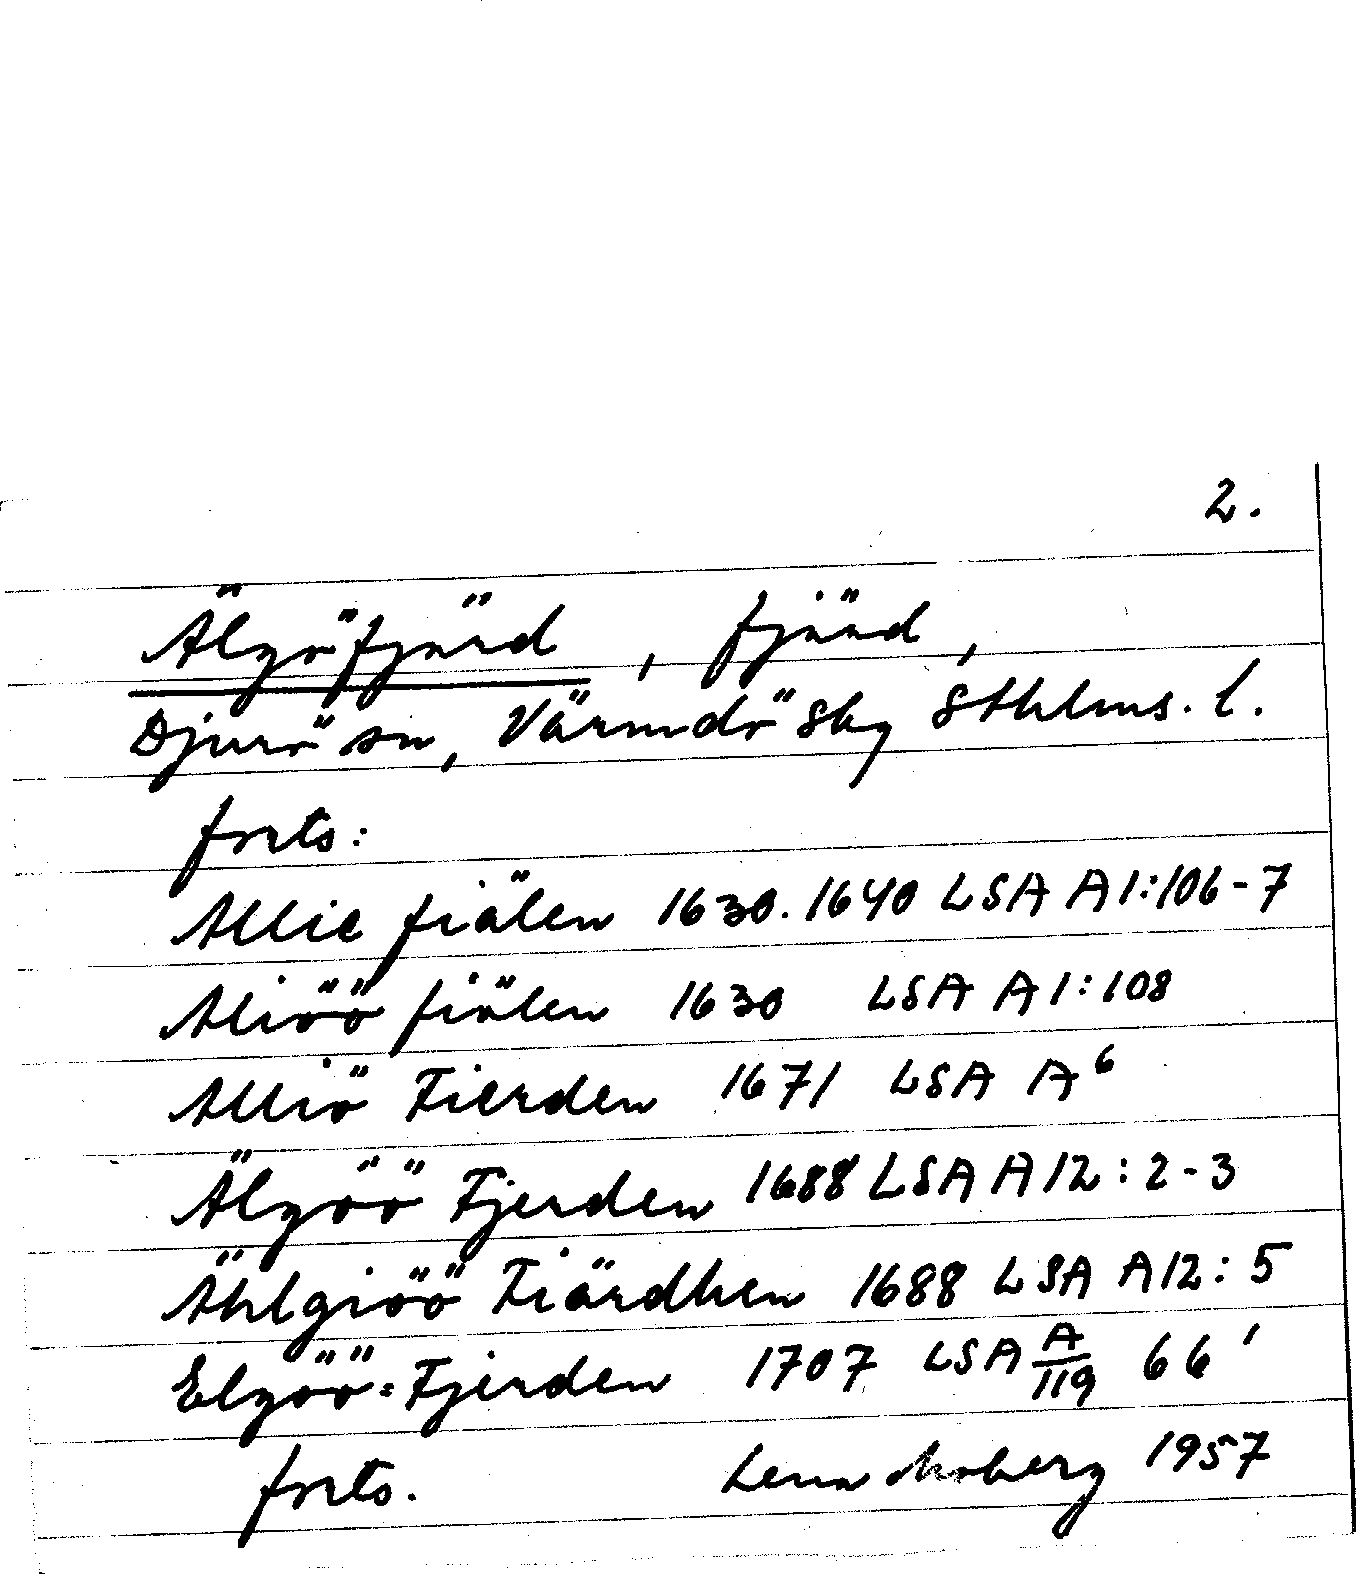 2.
Älgöfjärd, fjärd,
Djurö sn, Värmdö sky Sthlms. l.
forts:
Allie fiälen 1630. 1640 LSA A1:106-7
Aliöö fiälen 1630 LSA A1:108
Alliö Fierden 1671 LSA A6
Älgöö Fjerden 1688 LSA A12:2-3
Ählgiöö Fiärdhen 1688 LSA A12:5
Elgöö=Fjerden 1707 LSA A/119 66'
forts. Lena Moberg 1957